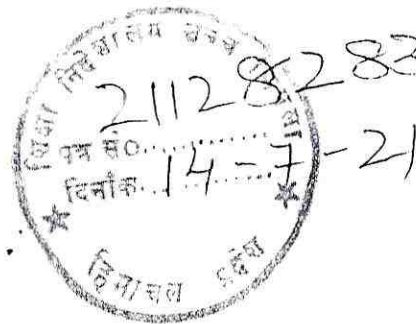 शिक्षा निदेशालय उच्च
21128283
पत्र सं०
दिनांक 14-7-21
हिमाचल प्रदेश